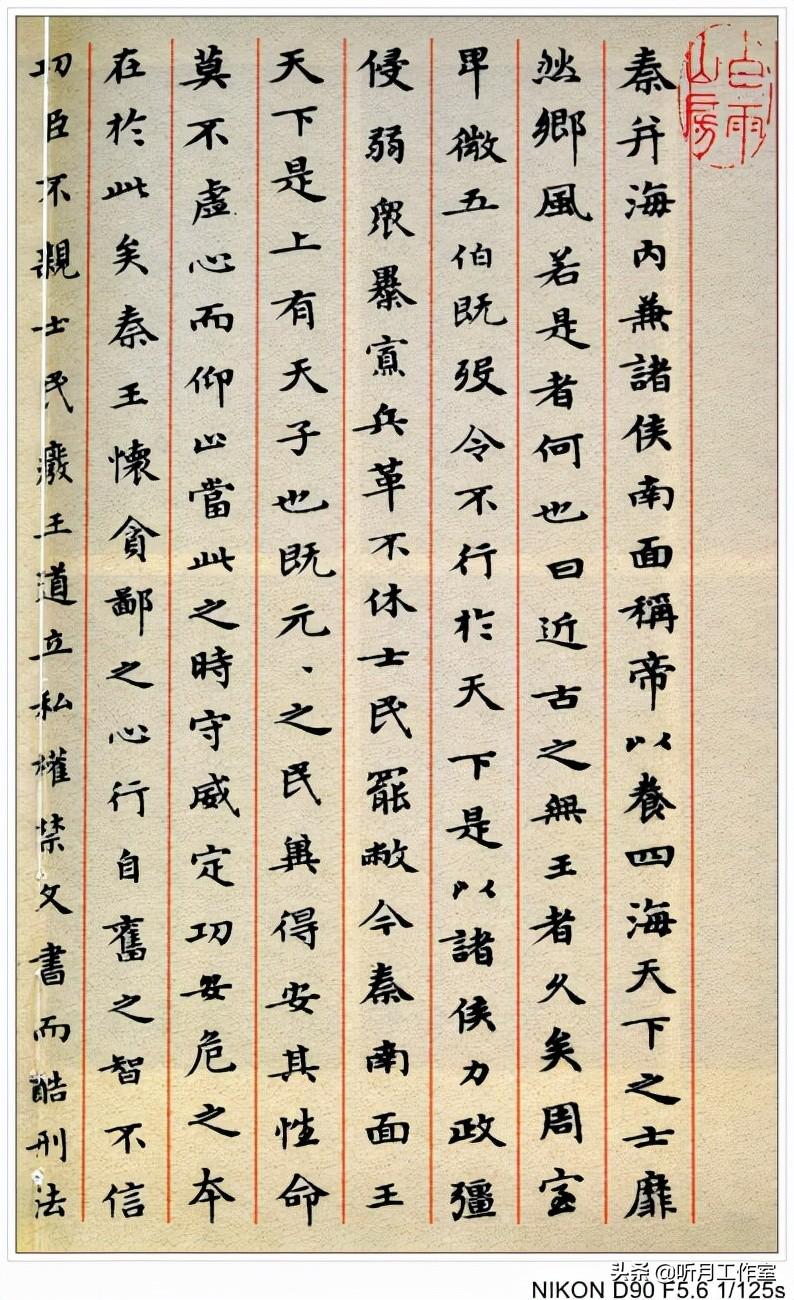 白雨山房
秦并海内兼諸侯南面稱帝以養四海天下之士靡
然鄉風若是者何也曰近古之無王者久矣周室
卑微五伯既歿令不行於天下是以諸侯力政彊
侵弱眾暴寡兵革不休士民罷敝今秦南面王
天下是上有天子也既元、之民兾得安其性命
莫不虛心而仰上當此之時守威定功安危之本
在於此矣秦王懷貪鄙之心行自奮之智不信
功臣不親士民廢王道立私權禁文書而酷刑法
头条 @听月工作室
NIKON D90 F5.6 1/125s